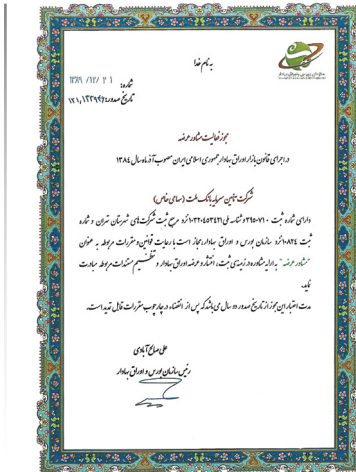 به نام خدا
شماره: ۱۳۸۹ /۱۲/ ۲۱
تاریخ صدور: ۱۲۱/۱۳۲۹۹۶
مجوز فعالیت مشاور عرضه
در اجرای قانون بازار اوراق بهادار جمهوری اسلامی ایران مصوب آذرماه سال ۱۳۸۴
شرکت تأمین سرمایه بانک ملت (سهامی خاص)
دارای شماره ثبت ۳۹۵۰۷۱ و شناسه ملی ۱۰۳۲۰۴۵۳۴۳۱ نزد مرجع ثبت شرکت‌های شهرستان تهران و شماره
ثبت ۱۰۸۲٤ نزد سازمان بورس و اوراق بهادار، مجاز است با رعایت قوانین و مقررات مربوط به عنوان
"مشاور عرضه" به ارائه مشاوره در زمینه‌ی ثبت، انتشار و عرضه اوراق بهادار و تنظیم مستندات مربوط مبادرت
نماید.
مدت اعتبار این مجوز از تاریخ صدور دو سال می‌باشد که پس از انقضاء در چارچوب مقررات قابل تمدید است.
علی صالح آبادی
رئیس سازمان بورس و اوراق بهادار